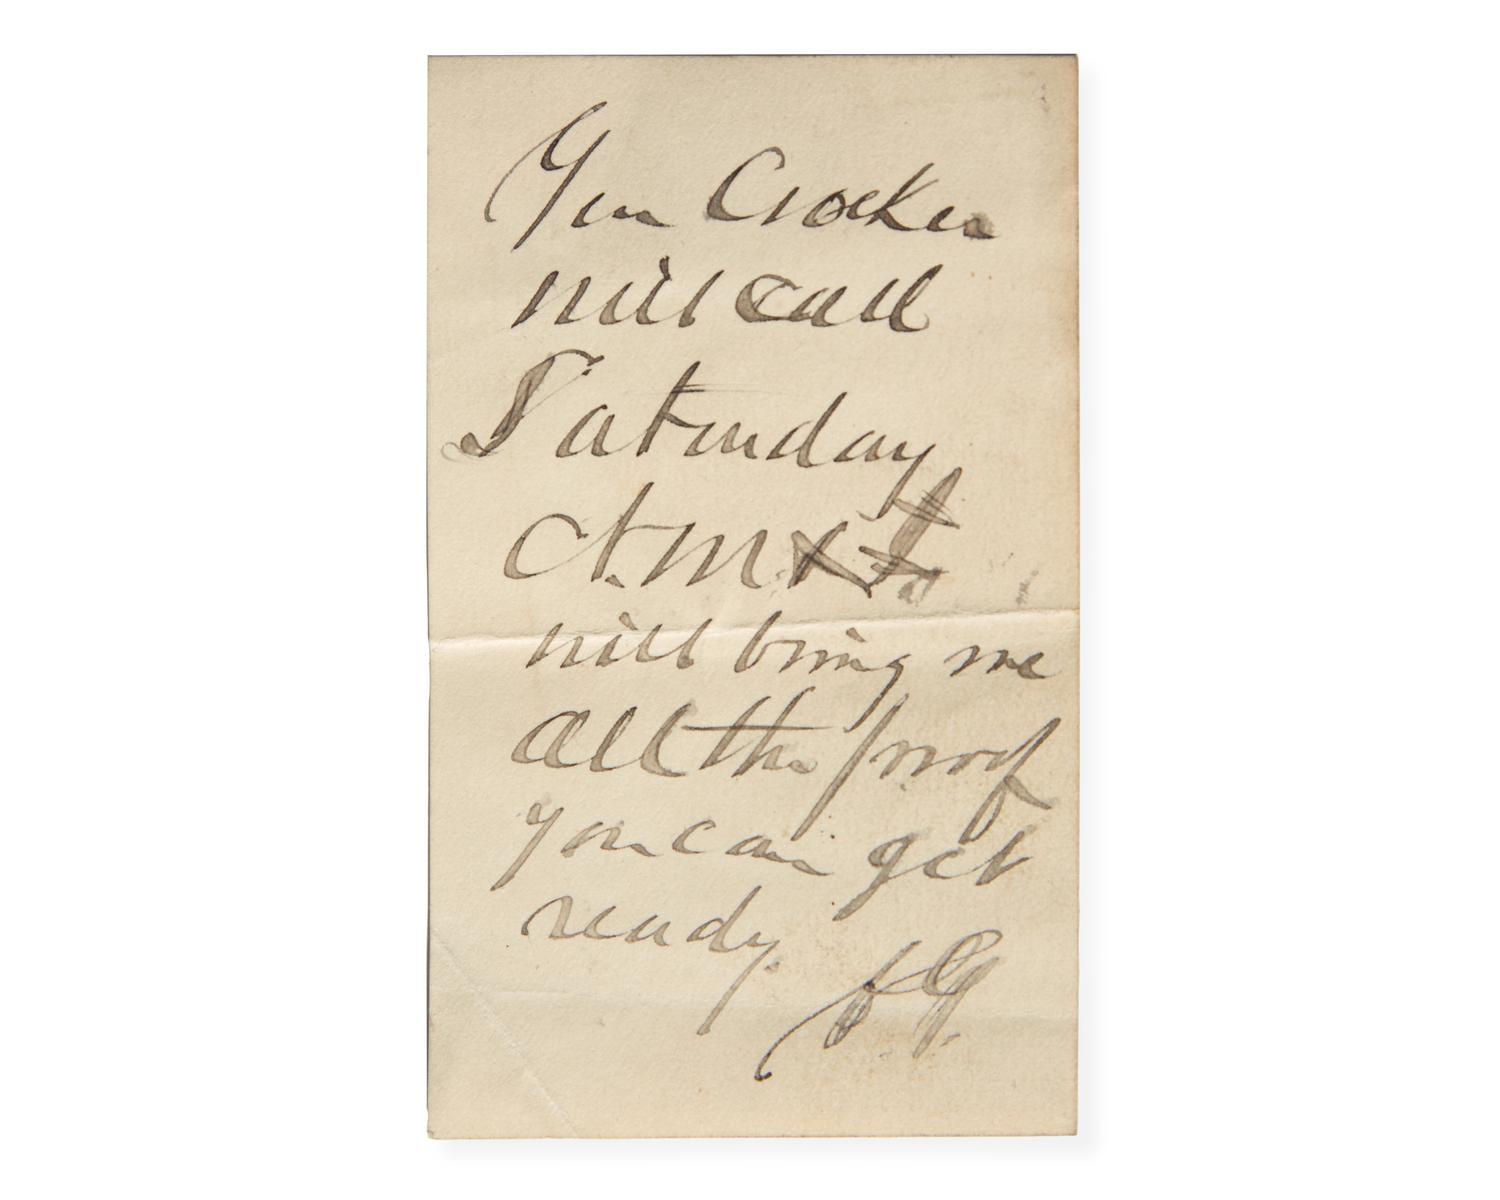 Gen Crocker
will call
Saturday
A.M
will bring me
all the proof
you can get
ready.